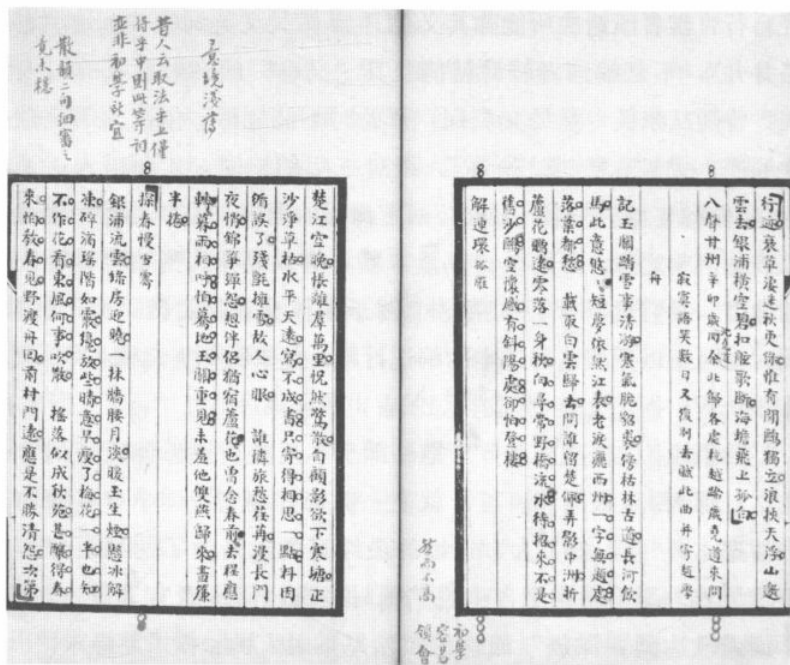 行遊衰草淒迷秋更綠惟有閒鷗獨立浪挾天浮山邀
雲去銀浦橫空碧扣舷歌斷海蟾飛上孤白
八聲甘州辛卯歲沈堯道同余北歸各處杭越踰歲堯道來問
寂寞語笑數日又復別去賦此曲并寄趙學
舟
記玉關踏雪事清游寒氣脆貂裘傍枯林古道長河飲
馬此意悠悠短夢依然江表老淚灑西州一字無題處
落葉都愁 載取白雲歸去問誰留楚佩弄影中洲折
蘆花贈遠零落一身秋向尋常野橋流水待招來不是
舊沙鷗空懷感有斜陽處卻怕登樓
蒼而不高
初學
容易
領會
解連環孤雁
意境淺薄
楚江空晚悵離群萬里怳然驚散自顧影欲下寒塘正
沙淨草枯水平天遠寫不成書只寄得相思一點料因
循誤了殘氈擁雪故人心眼 誰憐旅愁荏苒漫長門
夜悄錦箏彈怨想伴侶猶宿蘆花也曾念春前去程應
轉暮雨相呼怕驀地玉關重見未羞他雙燕歸來畫簾
半捲
昔人云取法乎上僅
得乎中則此等詞
並非初學所宜
探春慢雪霽
銀浦流雲綠房迎曉一抹牆腰月淡暖玉生煙懸冰解
凍碎滴瑤階如霰纔放些晴意早瘦了梅花一半也知
不作花看東風何事吹散 搖落似成秋苑甚釀得春
來怕教春見野渡舟回前村門掩應是不勝清怨次第
散韻二句細審之
竟未穩